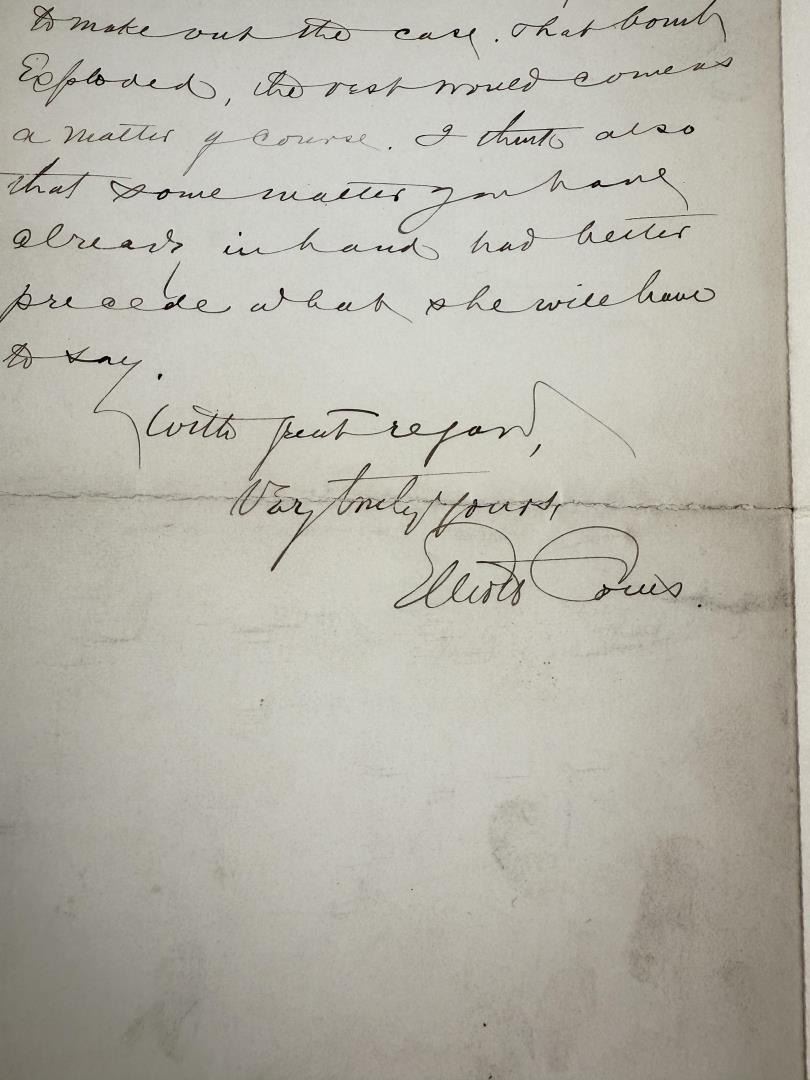 to make out the case. That bomb
Exploded, the rest would come as
a matter of course. I think also
that some matter you have
already in hand had better
precede what she will have
to say.
With great regard,
Very truly yours,
Elliott Coues.